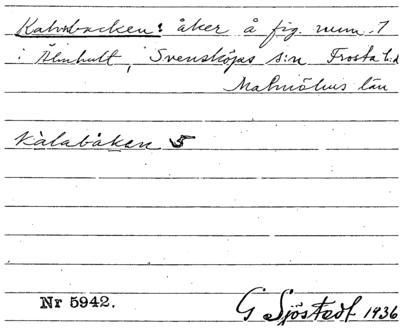 Kalvabacken: åker å fig. num. 1
i Älmhult, Svensköps s:n Frosta h:d
Malmöhus län
Kàlabåkan 5
Nr 5942.
G Sjöstedt 1936